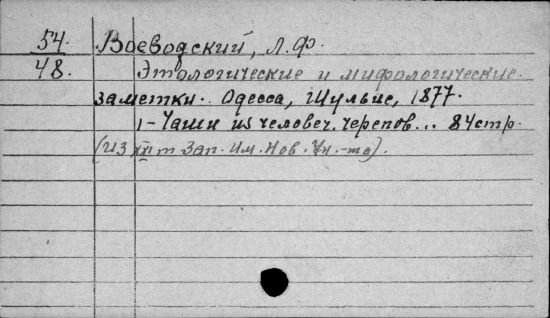 54. Воеводский, Л.Ф.
48. Этологические и мифологические
заметки. Одесса, Шульце, 1877.
1-Чаши из человеч. черепов... 84стр.
(из XXI т Зап. Им. Нов. Ун.-та).